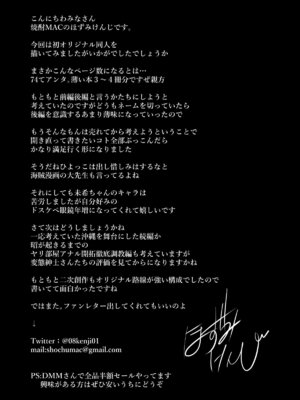 こんにちわみなさん
焼酎MACのはずみけんじです。
今回は初オリジナル同人を
描いてみましたがいかがでしたでしょうか
まさかこんなページ数になるとは…
74てアンタ、薄い本3～4冊分ですぜ親方
もともと前編後編と言うかたちにしようと
考えていたのですがどうもネームを切っていたら
後編を意識するあまり薄味になっていったので
もうそんなもんは売れてから考えようということで
開き直って書きたいコト全部ぶっこんだら
かなり満足行く形になりました
そうだねひよっこは出し惜しみはするなと
海賊漫画の大先生も言ってるよね
それにしても未希ちゃんのキャラは
苦労しましたが自分好みの
ドスケベ眼鏡年増になってくれて嬉しいです
さて次はどうしましょうかね
一応考えていた沖縄を舞台にした続編か
昭が起きるまでの
ヤリ部屋アナル開拓徹底調教編も考えていますが
変態紳士さんたちの評価を見てからになりますかね
もともと二次創作もオリジナル路線が強い構成でしたので
書いてて面白かったですね
ではまた。ファンレター出してくれてもいいのよ
↓
Twitter：@08kenji01
mail:shochumac@gmail.com
はずみけんじ
PS:DMMさんで全品半額セールやってます
興味がある方はぜひ安いうちにどうぞ